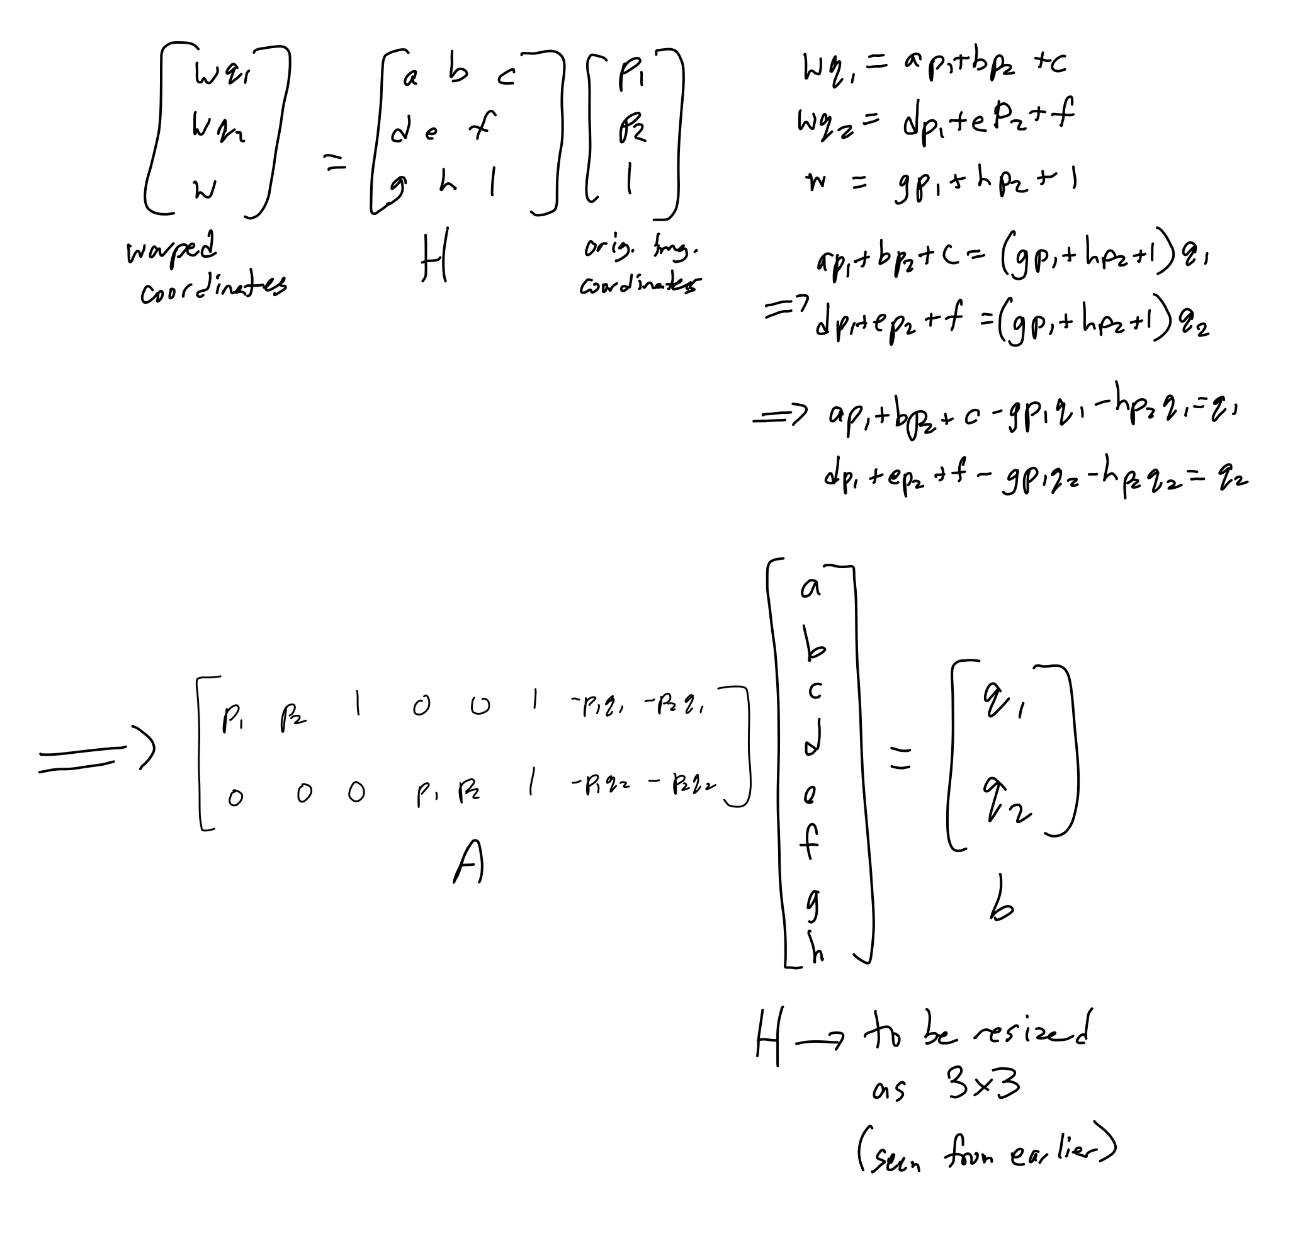 [wq₁ wq₂ w] = [a b c d e f g h 1] [p₁ p₂ 1]
warped coordinates
H
orig. img. coordinates
wq₁ = ap₁+bp₂+c
wq₂ = dp₁+ep₂+f
w = gp₁+hp₂+1
ap₁+bp₂+c = (gp₁+hp₂+1)q₁
⇒ dp₁+ep₂+f = (gp₁+hp₂+1)q₂
⇒ ap₁+bp₂+c-gp₁q₁-hp₂q₁=q₁
dp₁+ep₂+f-gp₁q₂-hp₂q₂=q₂
⇒ [p₁ p₂ 1 0 0 1 -p₁q₁ -p₂q₁
0 0 0 p₁ p₂ 1 -p₁q₂ -p₂q₂]
A
[a
b
c
d
e
f
g
h]
= [q₁
q₂]
b
H → to be resized
as 3×3
(seen from earlier)